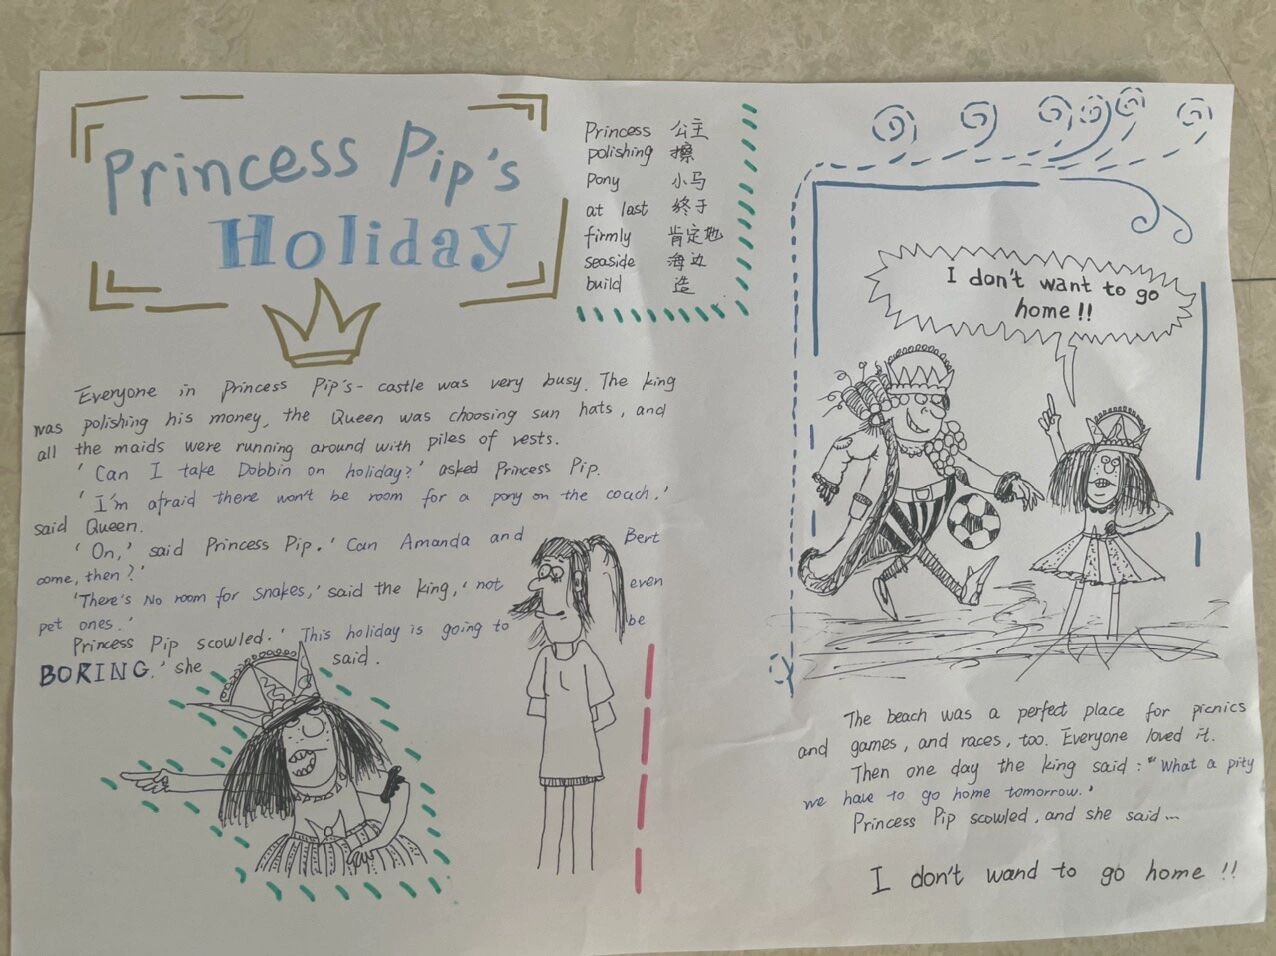 Princess Pip's
Holiday
Princess 公主
polishing 擦
Pony 小马
at last 终于
firmly 肯定地
seaside 海边
build 造
Everyone in Princess Pip's- castle was very busy. The king
was polishing his money, the Queen was choosing sun hats, and
all the maids were running around with piles of vests.
'Can I take Dobbin on holiday?' asked Princess Pip.
'I'm afraid there won't be room for a pony on the coach.'
said Queen.
'On,' said Princess Pip.' Can Amanda and Bert
come, then?'
'There's No room for snakes,' said the king,' not even
pet ones.'
Princess Pip scowled.' This holiday is going to be
BORING.' she said.
I don't want to go
home!!
The beach was a perfect place for picnics
and games, and races, too. Everyone loved it.
Then one day the king said:"What a pity
we have to go home tomorrow.'
Princess Pip scowled, and she said...
I don't wand to go home!!